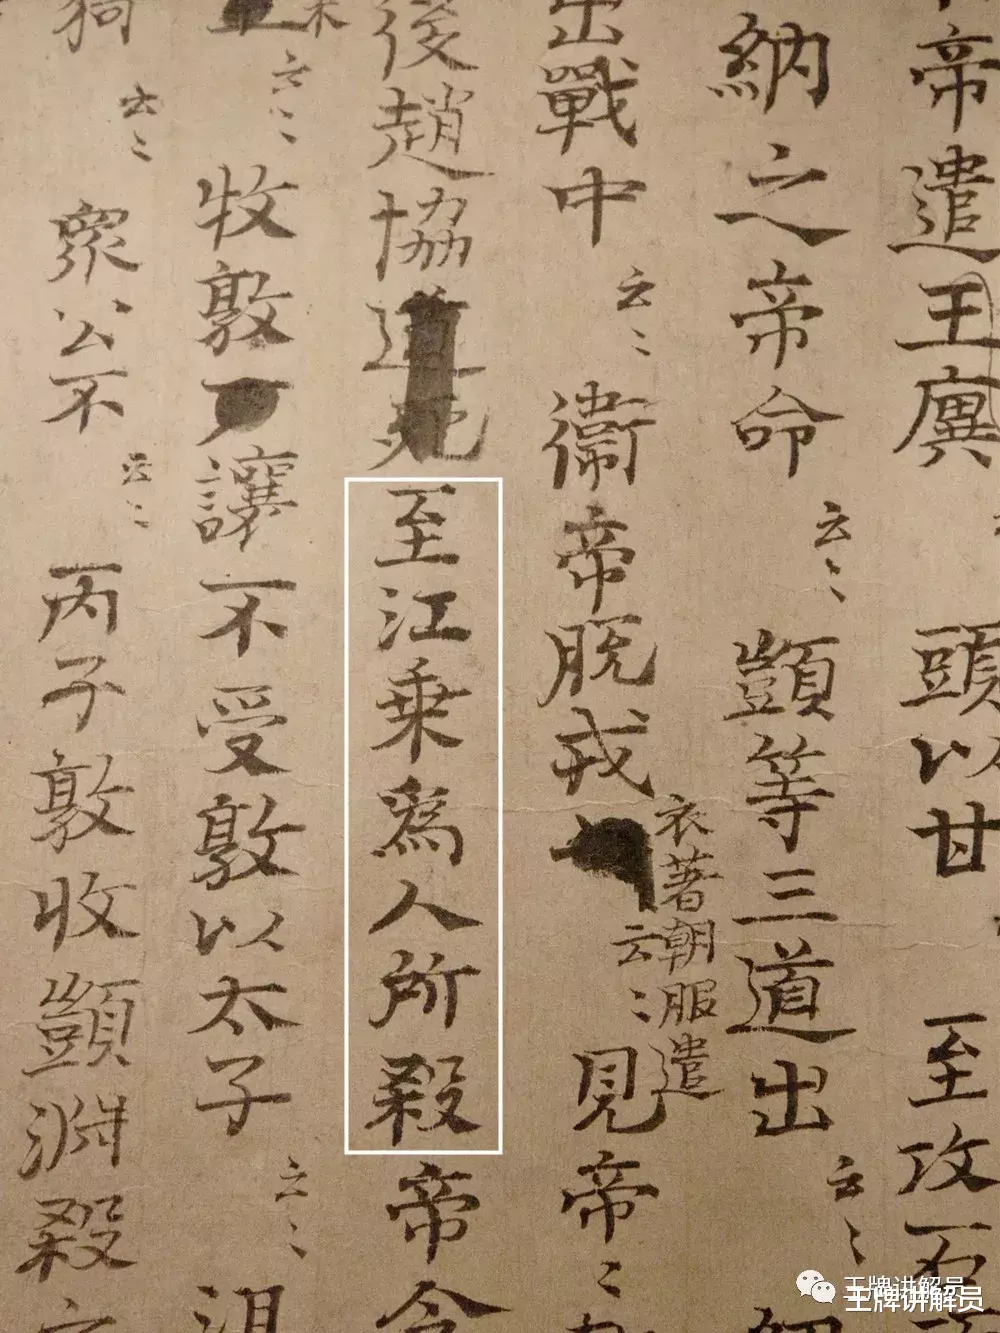 帝遣王廙 頭以甘 至攻石
納之帝命云〻顗等三道出云〻
出戰中云〻衛帝脫戎衣著朝服遣云〻見帝〻
後趙協道死至江乗爲人所殺帝令
云〻牧敦讓不受敦以太子云〻沮
狗云〻眾公不云〻丙子敦收顗淵殺云
王牌讲解员
王牌讲解员